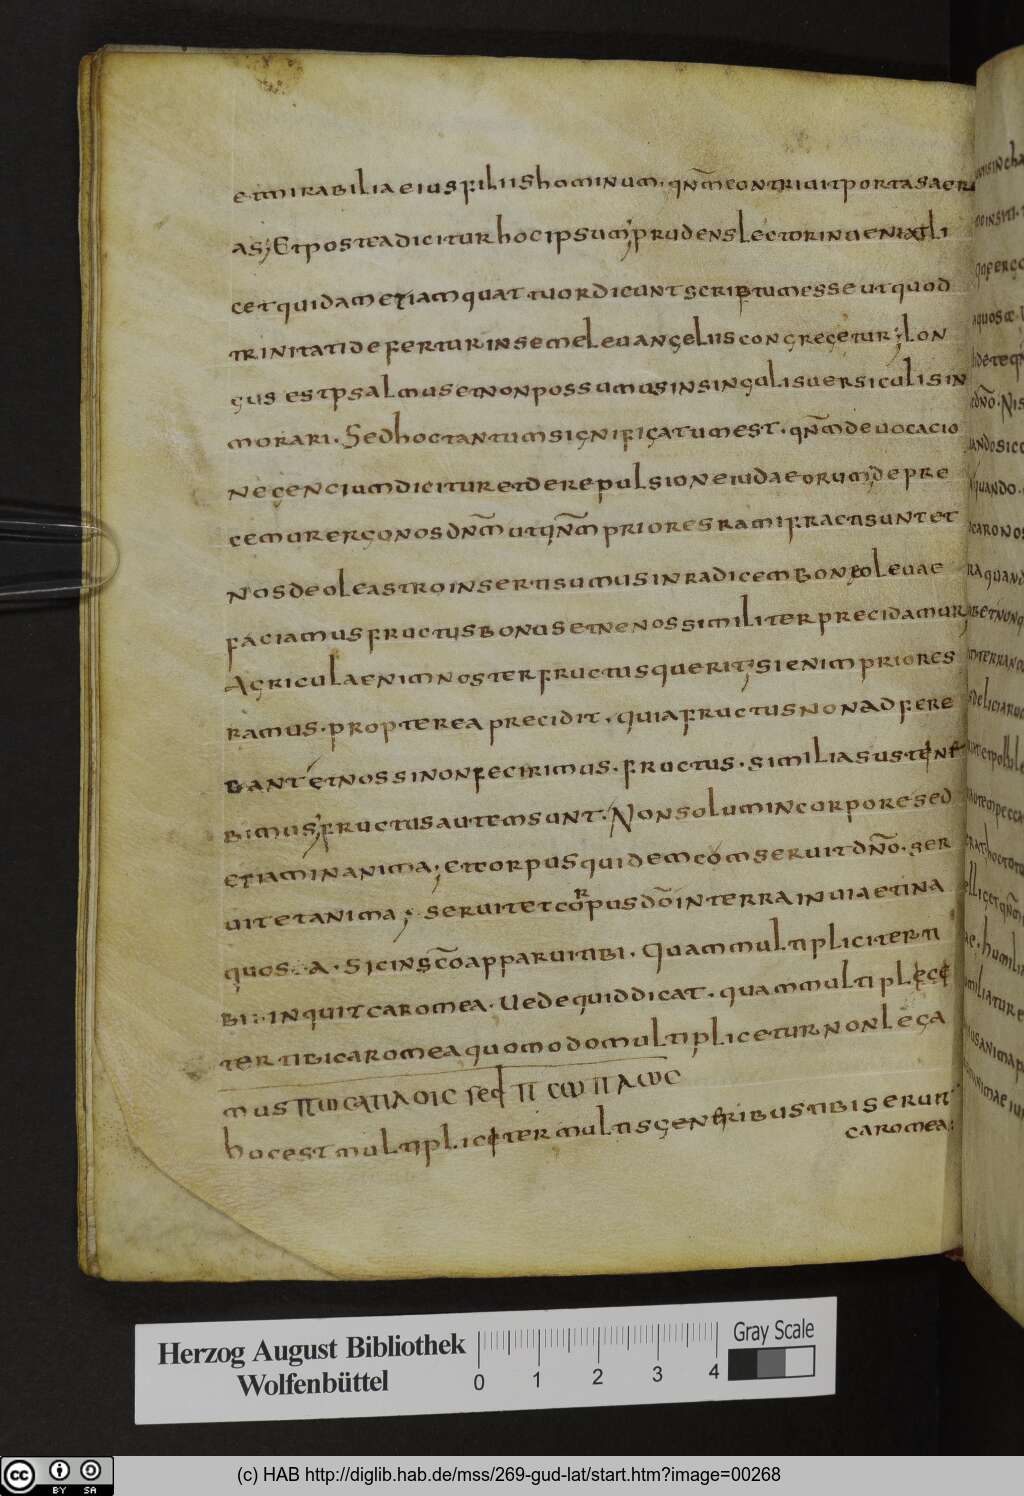 etmirabiliaeiusfiliishominum. qnm̄contriuitportasaere
as; Etposteadiciturhocipsum; prudenslectorinueniat; li
cetquidametiamquattuordicuntscriptumesseutquod
trinitatideferturinsemeleuangeliiscongregetur; lon
gus estpsalmusetnonpossumusinsingulisuersiculisin
morari. Sedhoctantumsignificatumest. qnm̄deuocacio
negenciumdicituretderepulsioneiudaeorum; depre
cemurergonosdnm̄utqnm̄prioresramifractisuntet
nosdeoleastroinsertisumusinradicembonęoleuae
faciamusfructusbonusetnenossimiliterprecidamur;
Agriculaenimnosterfructusquerit; sienimpriores
ramus. proptereaprecidit, quiafructusnonadfere
bantetnossinonfecirimus. fructus. similiasustene
bimus; fructusautemsunt. Nonsolumincorporesed
etiaminanima; etcorpusquidemcomseruitdno̅. ser
uitetanima; seruitetcorpusdo̅interrainuiaetina
quosa. sicinsco̅apparuitibi. Quammultipliciterti
bi: inquitcaromea. Uedequiddicat. quammultiplece
tertibicaromeaquomodomultipliceturnonlega
mus ΠΩCΑΠΛΟΙC sed Π CΩ ΠΛΩC
hocestmultipliciter multisgentribustibiseruit
caromea:
Herzog August Bibliothek
Wolfenbüttel
0 1 2 3 4
Gray Scale
cc BY SA
(c) HAB http://diglib.hab.de/mss/269-gud-lat/start.htm?image=00268